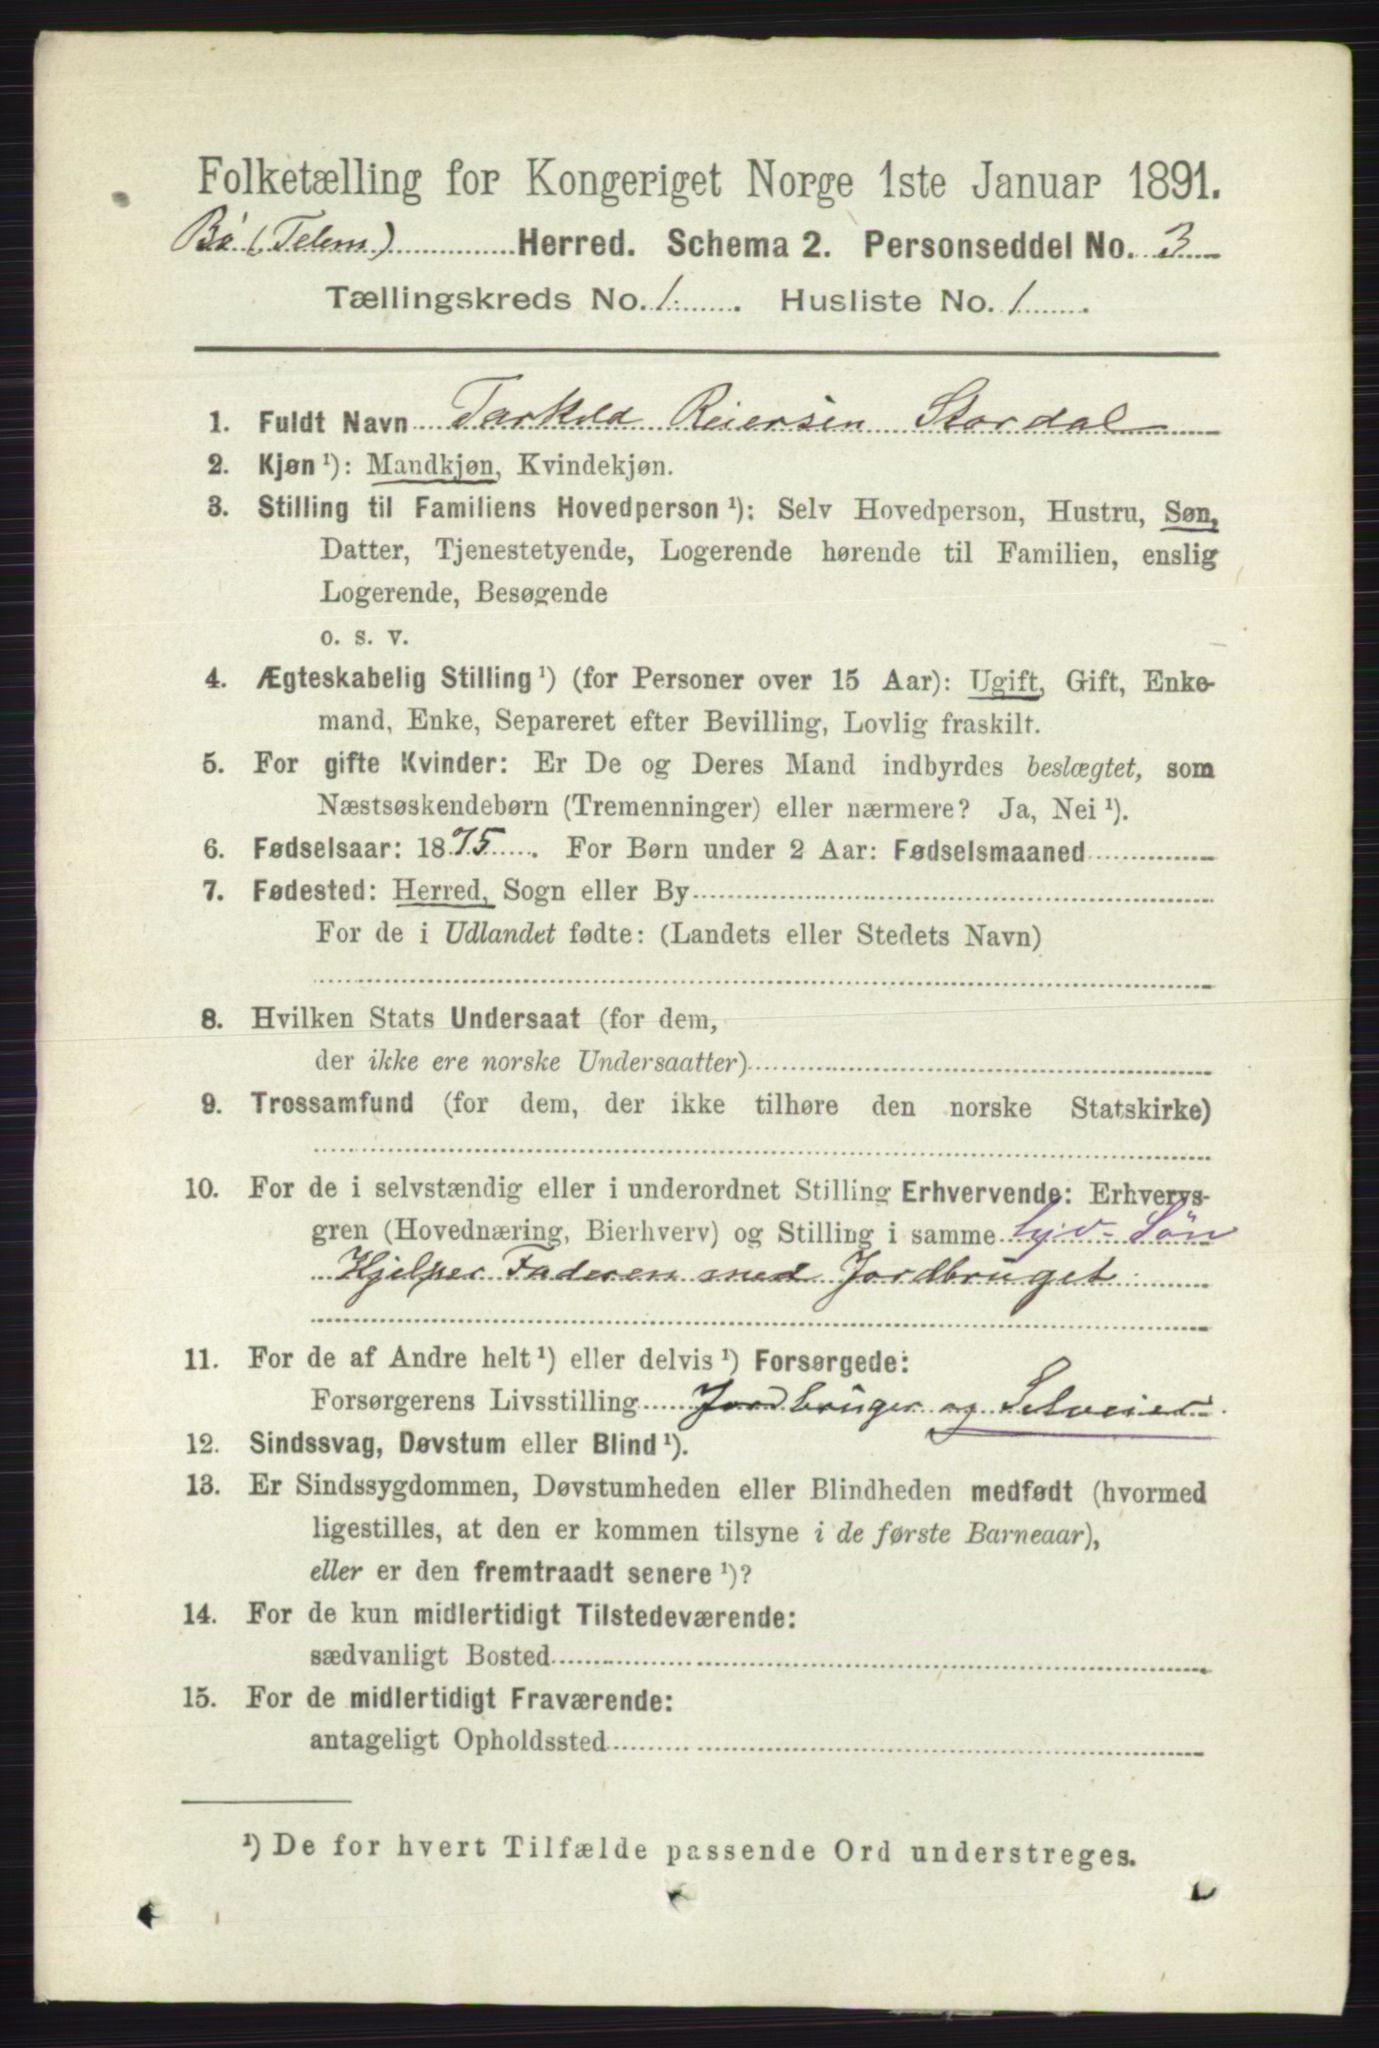 Folketælling for Kongeriget Norge 1ste Januar 1891.
Bø (Telem) Herred. Schema 2. Personseddel No. 3
Tællingskreds No. 1. Husliste No. 1.
1. Fuldt Navn Tarkeld Reiersen Stordal
2. Kjøn ¹): Mandkjøn, Kvindekjøn.
3. Stilling til Familiens Hovedperson ¹): Selv Hovedperson, Hustru, Søn,
Datter, Tjenestetyende, Logerende hørende til Familien, enslig
Logerende, Besøgende
o. s. v.
4. Ægteskabelig Stilling ¹) (for Personer over 15 Aar): Ugift, Gift, Enke-
mand, Enke, Separeret efter Bevilling, Lovlig fraskilt.
5. For gifte Kvinder: Er De og Deres Mand indbyrdes beslægtet, som
Næstsøskendebørn (Tremenninger) eller nærmere? Ja, Nei ¹).
6. Fødselsaar: 1875. For Børn under 2 Aar: Fødselsmaaned
7. Fødested: Herred, Sogn eller By
For de i Udlandet fødte: (Landets eller Stedets Navn)
8. Hvilken Stats Undersaat (for dem,
der ikke ere norske Undersaatter)
9. Trossamfund (for dem, der ikke tilhøre den norske Statskirke)
10. For de i selvstændig eller i underordnet Stilling Erhvervende: Erhvervs-
gren (Hovednæring, Bierhverv) og Stilling i samme Søn
Hjelper Faderen med Jordbruget
11. For de af Andre helt ¹) eller delvis ¹) Forsørgede:
Forsørgerens Livsstilling Jordbruger og Selveier
12. Sindssvag, Døvstum eller Blind ¹).
13. Er Sindssygdommen, Døvstumheden eller Blindheden medfødt (hvormed
ligestilles, at den er kommen tilsyne i de første Barneaar),
eller er den fremtraadt senere ¹)?
14. For de kun midlertidigt Tilstedeværende:
sædvanligt Bosted
15. For de midlertidigt Fraværende:
antageligt Opholdssted
¹) De for hvert Tilfælde passende Ord understreges.